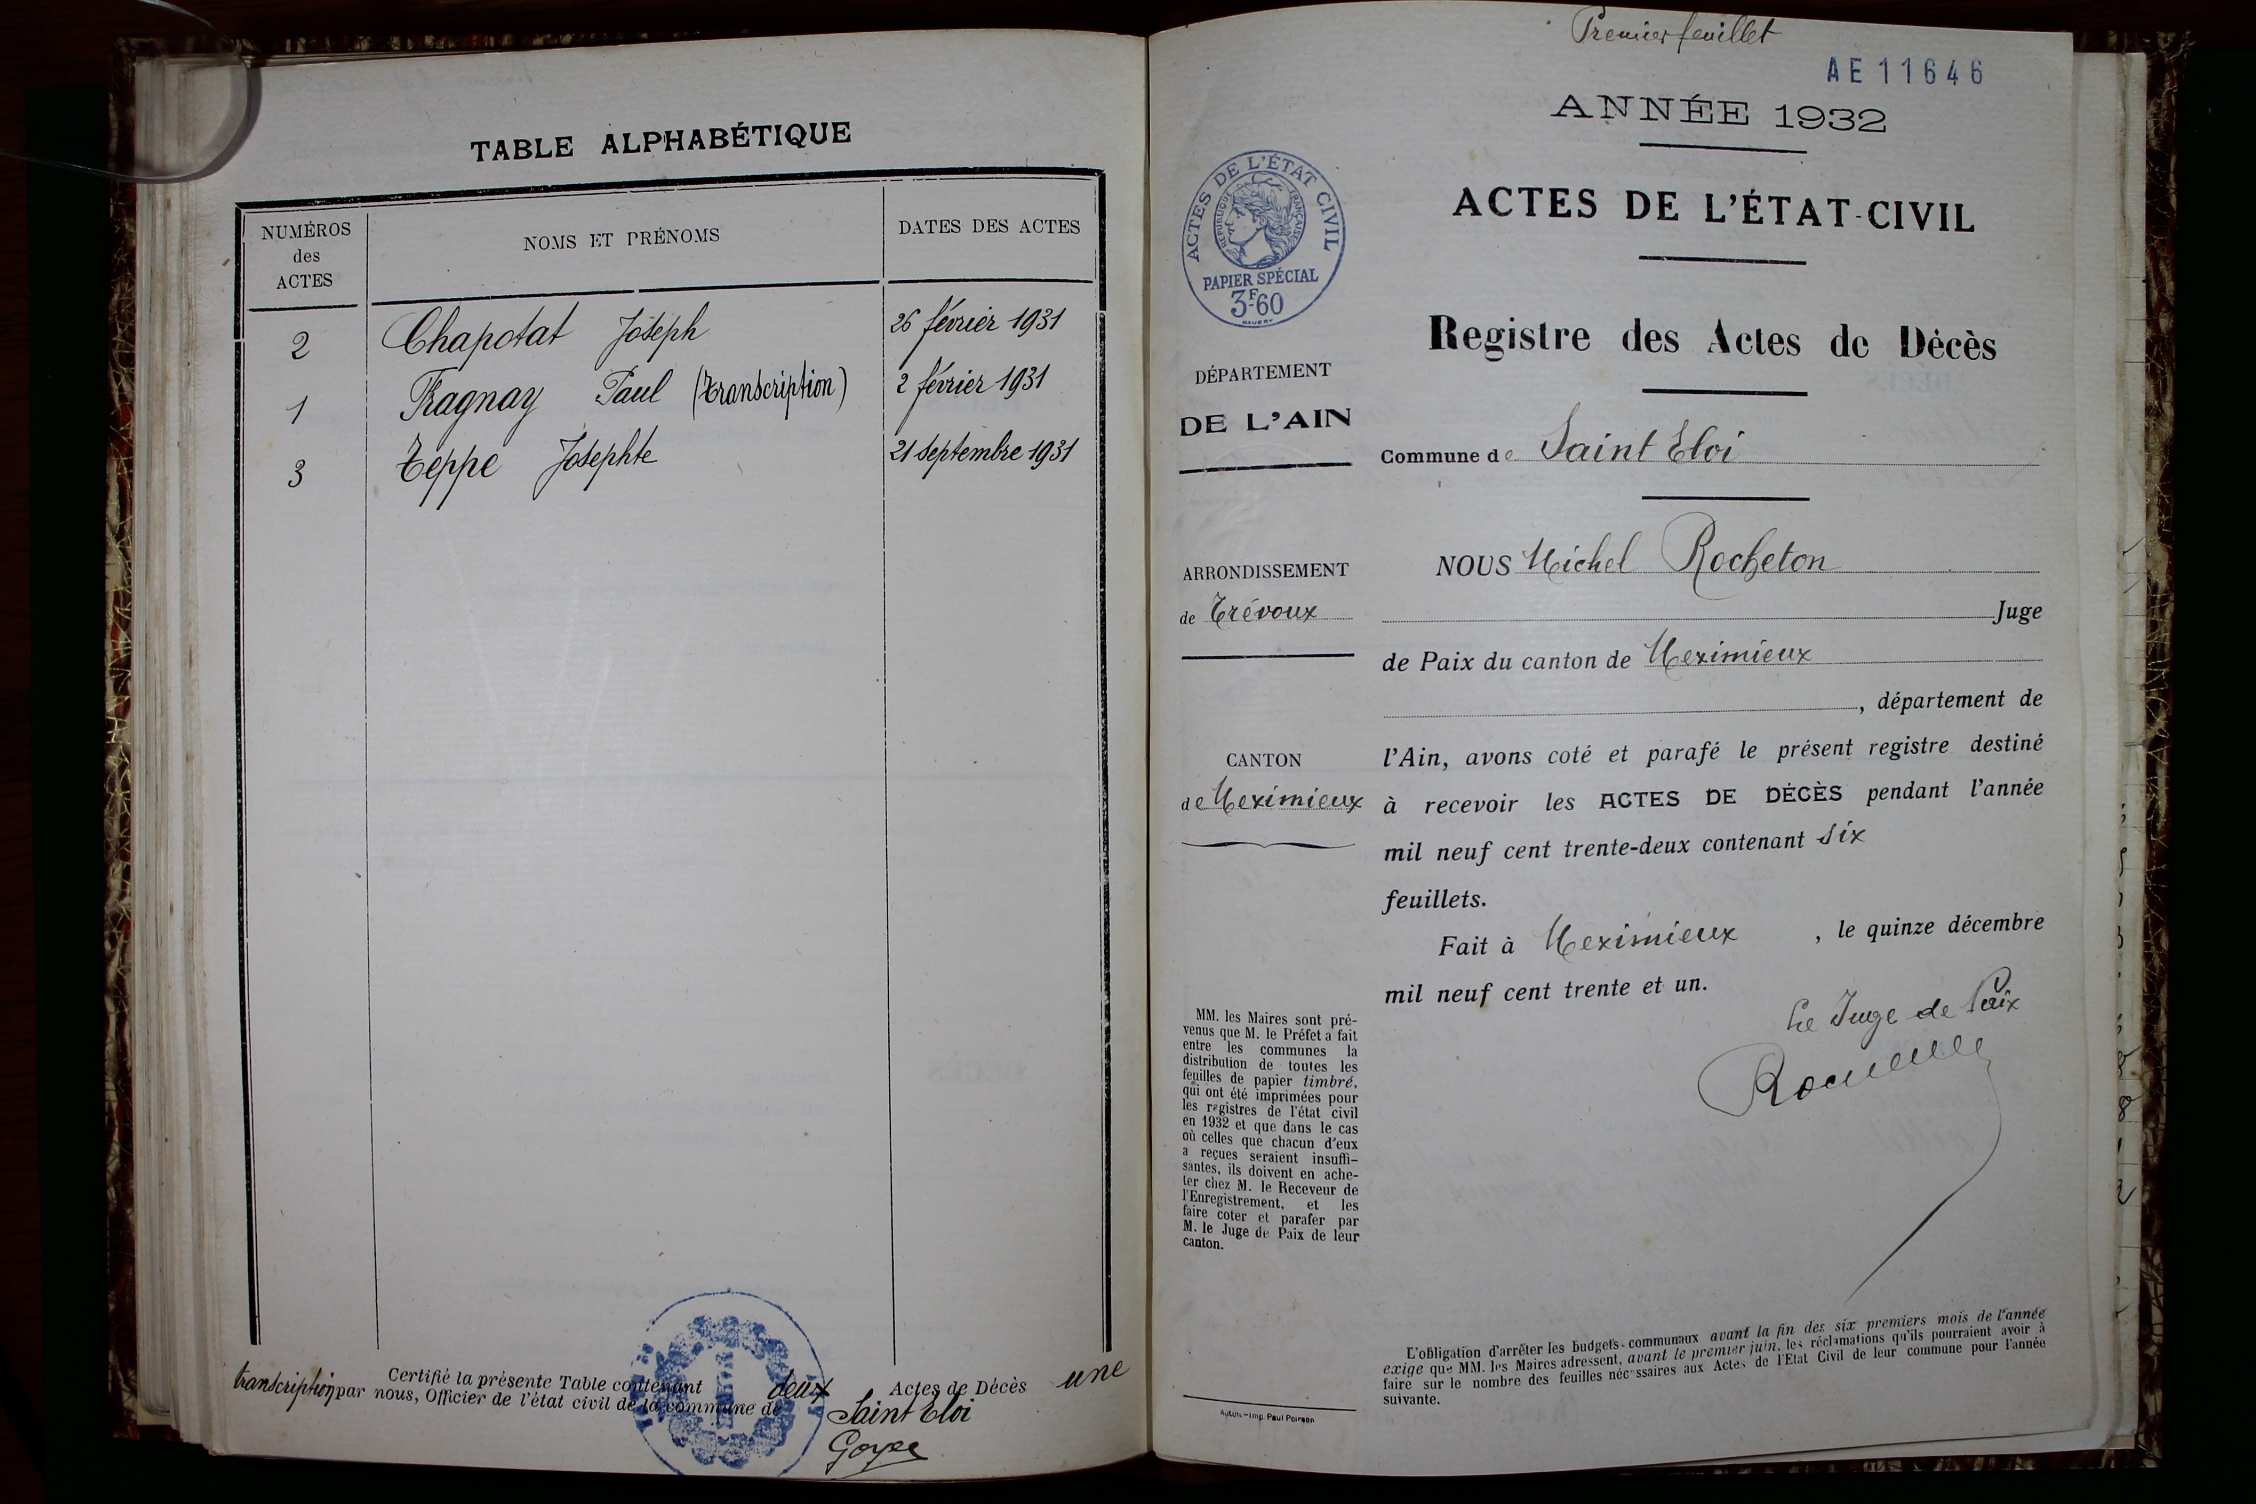 TABLE ALPHABÉTIQUE
NUMÉROS
des
ACTES
NOMS ET PRÉNOMS
DATES DES ACTES
2 Chapotat Joseph 26 février 1931
1 Fragnay Paul (transcription) 2 février 1931
3 Teppe Josephte 21 septembre 1931
Certifié la présente Table contenant deux Actes de Décès une
transcription par nous, Officier de l'état civil de la commune de Saint Eloi
Goyee
Premier feuillet
AE 11646
ANNÉE 1932
ACTES DE L'ÉTAT-CIVIL
Registre des Actes de Décès
Commune de Saint Eloi
ACTES DE L'ÉTAT CIVIL
RÉPUBLIQUE FRANÇAISE
PAPIER SPÉCIAL
3F60
DÉPARTEMENT
DE L'AIN
ARRONDISSEMENT
de Trévoux
CANTON
de Meximieux
NOUS Michel Rocheton
Juge
de Paix du canton de Meximieux
, département de
l'Ain, avons coté et parafé le présent registre destiné
à recevoir les ACTES DE DÉCÈS pendant l'année
mil neuf cent trente-deux contenant six
feuillets.
Fait à Meximieux , le quinze décembre
mil neuf cent trente et un.
Le Juge de Paix
MM. les Maires sont pré-
venus que M. le Préfet a fait
entre les communes la
distribution de toutes les
feuilles de papier timbré,
qui ont été imprimées pour
les registres de l'état civil
en 1932 et que dans le cas
où celles que chacun d'eux
a reçues seraient insuffi-
santes, ils doivent en ache-
ter chez M. le Receveur de
l'Enregistrement, et les
faire coter et parafer par
M. le Juge de Paix de leur
canton.
L'obligation d'arrêter les budgets communaux avant la fin des six premiers mois de l'année
exige que MM. les Maires adressent, avant le premier juin, les réclamations qu'ils pourraient avoir à
faire sur le nombre des feuilles nécessaires aux Actes de l'Etat Civil de leur commune pour l'année
suivante.
Autun - Imp. Paul Poirson